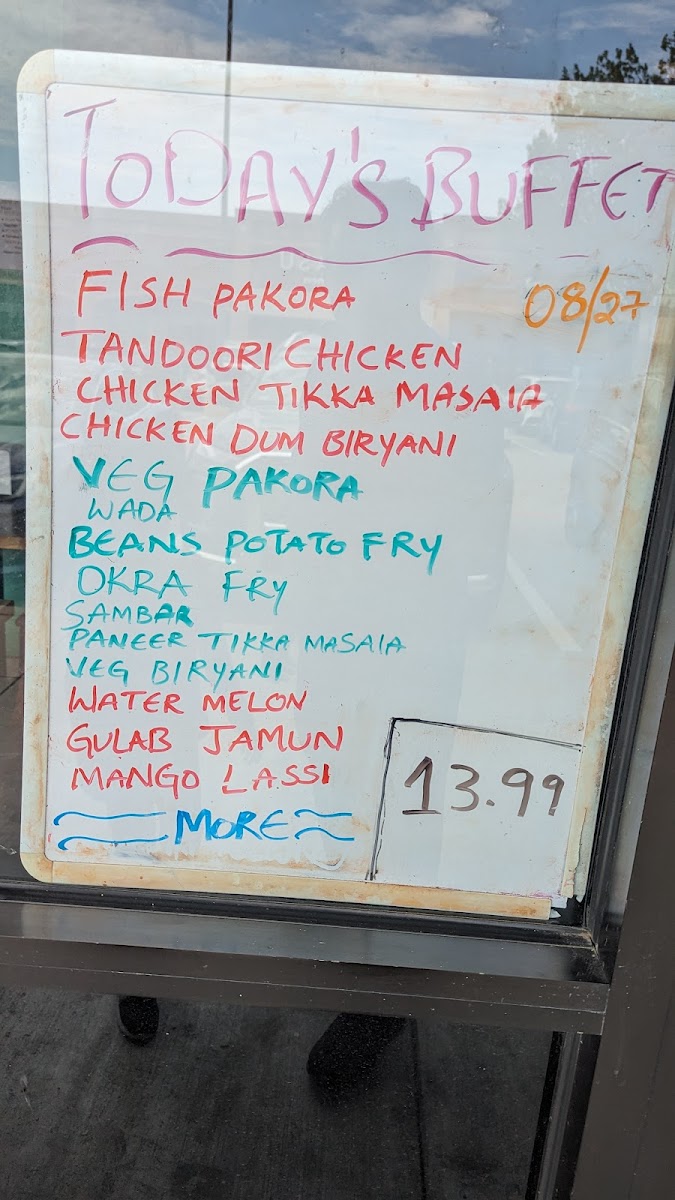 TODAY'S BUFFET
08/27
FISH PAKORA
TANDOORI CHICKEN
CHICKEN TIKKA MASALA
CHICKEN DUM BIRYANI
VEG PAKORA
WADA
BEANS POTATO FRY
OKRA FRY
SAMBAR
PANEER TIKKA MASALA
VEG BIRYANI
WATER MELON
GULAB JAMUN
MANGO LASSI
MORE
13.99